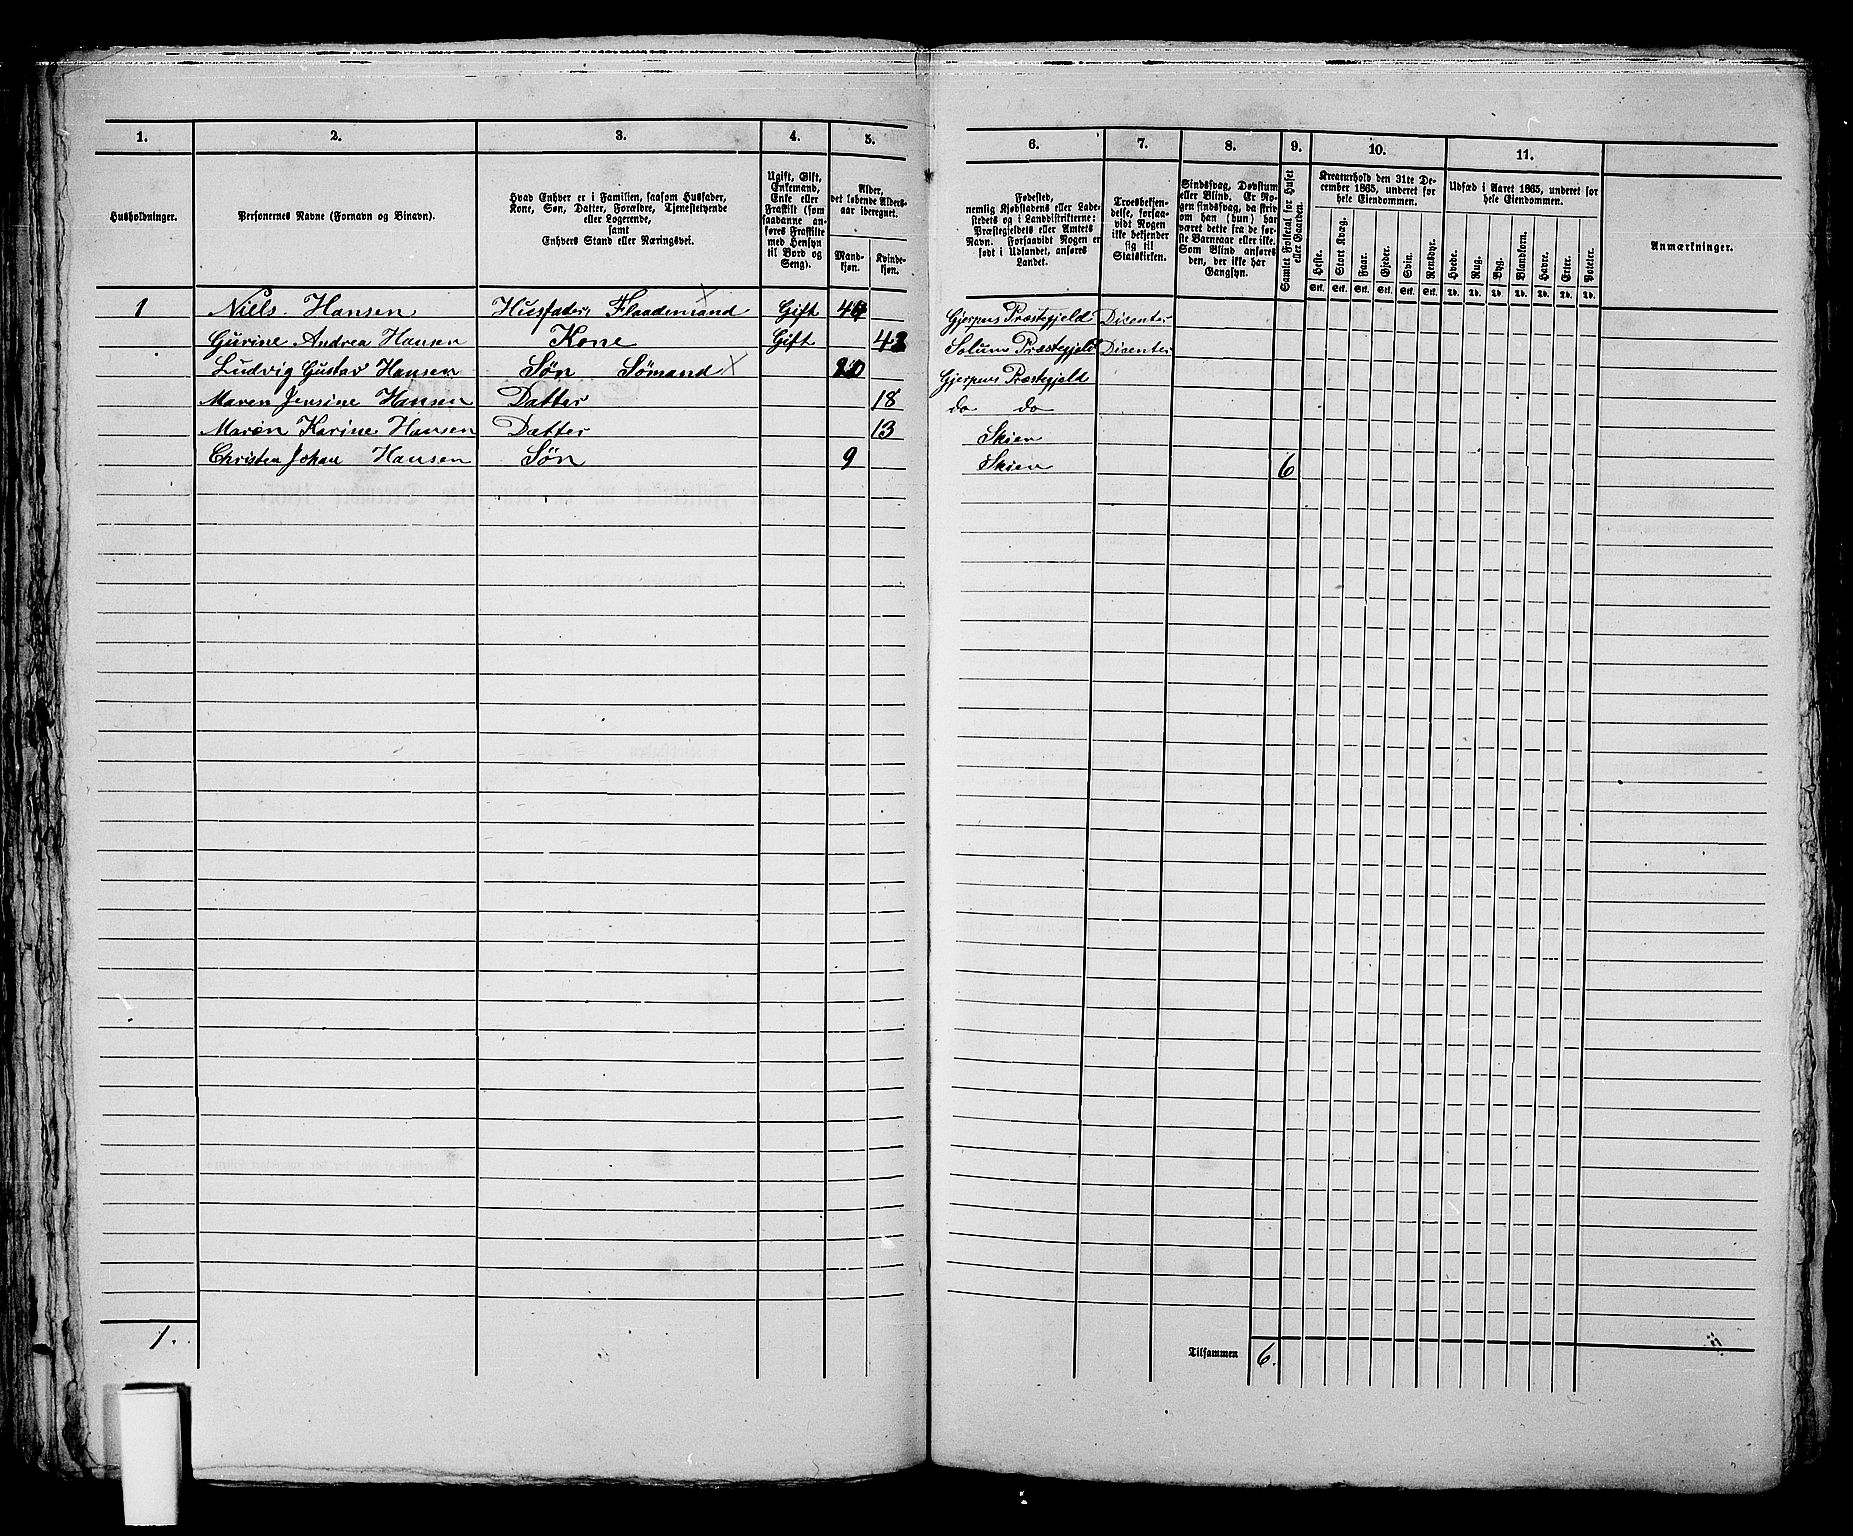 1. 2. 3. 4. 5. 6. 7. 8. 9. 10. 11.
Husholdninger.
Personernes Navne (Fornavn og Binavn).
Hvad Enhver er i Familien, saasom Husfader,
Kone, Søn, Datter, Forældre, Tjenestetyende
eller Logerende,
samt
Enhvers Stand eller Næringsvei.
Ugift, Gift,
Enkemand,
Enke eller
Fraskilt (som
saadanne an-
føres Fraskilte
med Hensyn
til Bord og
Seng).
Alder,
det løbende Alders-
aar iberegnet.
Mand-
kjøn.
Kvinde-
kjøn.
Fødested,
nemlig Kjøbstadens eller Lade-
stedets og i Landdistrikterne:
Præstegjeldets eller Amtets
Navn. Forsaavidt Nogen er
født i Udlandet, anføres
Landet.
Troesbekjen-
delse, forsaa-
vidt Nogen
ikke bekjender
sig til
Statskirken.
Sindssvag, Døvstum
eller Blind. Er No-
gen sindssvag, da skriv
om han (hun) har
været dette fra de før-
ste Barnaar eller ikke.
Som Blind anføres
den, der ikke har
Gangsyn.
Samlet Folketal for Huset
eller Gaarden.
Kreaturhold den 31te De-
cember 1865, underet for
hele Eiendommen.
Heste. Stort Kvæg. Faar. Gjeder. Svin. Rensdyr.
Stk. Stk. Stk. Stk. Stk. Stk.
Udsæd i Aaret 1865, underet for
hele Eiendommen.
Hvede. Rug. Byg. Blandkorn. Havre. Erter. Poteter.
Td. Td. Td. Td. Td. Td. Td.
Anmærkninger.
1 Niels Hansen Husfader, Flaademand Gift Gjerpens Præstegjeld Dicenter
Gurine Andrea Hansen Kone Gift Solums Præstegjeld Dicenter
Ludvig Gustav Hansen Søn Sømand Gjerpens Præstegjeld
Maren Jensine Hansen Datter 18 do do
Maren Karine Hansen Datter 13 Skien
Christen Johan Hansen Søn 9 Skien 6
1. Tilsammen 6.